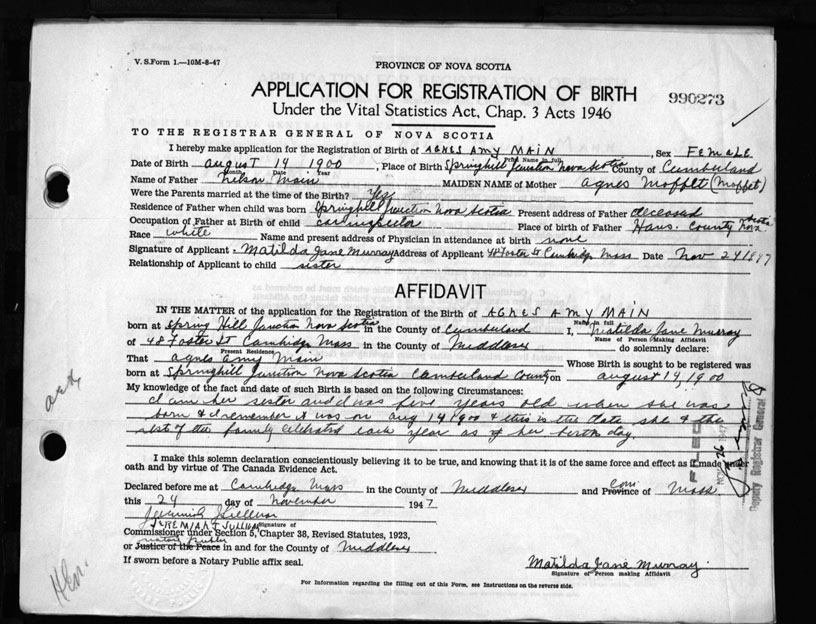 V. S. Form 1.—10M-8-47
PROVINCE OF NOVA SCOTIA
APPLICATION FOR REGISTRATION OF BIRTH
990273
Under the Vital Statistics Act, Chap. 3 Acts 1946
TO THE REGISTRAR GENERAL OF NOVA SCOTIA
I hereby make application for the Registration of Birth of AGNES AMY MAIN, Sex FEMALE
Print Name in full
Date of Birth august 14 1900, Place of Birth Springhill Junction Nova Scotia County of Cumberland
Month Date Year
Name of Father Nelson Main MAIDEN NAME of Mother agnes Moffet (Moffet)
Were the Parents married at the time of the Birth? Yes
Residence of Father when child was born Springhill Junction Nova Scotia Present address of Father deceased
Occupation of Father at Birth of child car inspector Place of birth of Father Hans. County Nova Scotia
Race white Name and present address of Physician in attendance at birth none
Signature of Applicant Matilda Jane Murray Address of Applicant 48 Foster St Cambridge Mass Date Nov 24 1947
Relationship of Applicant to child sister
AFFIDAVIT
IN THE MATTER of the application for the Registration of the Birth of AGNES AMY MAIN
Name in full
born at Spring Hill Junction Nova Scotia in the County of Cumberland I, Matilda Jane Murray
Name of Person Making Affidavit
of 48 Foster St Cambridge Mass in the County of Middlesex do solemnly declare:
Present Residence
That agnes amy Main Whose Birth is sought to be registered was
born at Springhill Junction Nova Scotia Cumberland County on august 14, 1900
My knowledge of the fact and date of such Birth is based on the following Circumstances:
I am her sister and I was five years old when she was
born & I remember it was on aug 14 1900 & this is the date she & the
rest of the family celebrated each year as of her birthday.
I make this solemn declaration conscientiously believing it to be true, and knowing that it is of the same force and effect as if made under
oath and by virtue of The Canada Evidence Act.
Declared before me at Cambridge Mass in the County of Middlesex and Com. Province of Mass
this 24 day of November 1947
Jeremiah Sullivan
JEREMIAH J SULLIVAN
Signature of
Commissioner under Section 5, Chapter 38, Revised Statutes, 1923,
notary Public
or Justice of the Peace in and for the County of Middlesex
If sworn before a Notary Public affix seal.
Matilda Jane Murray
Signature of Person making Affidavit
For Information regarding the filling out of this Form, see Instructions on the reverse side.
FILED
NOV 26 1947
Deputy Registrar General